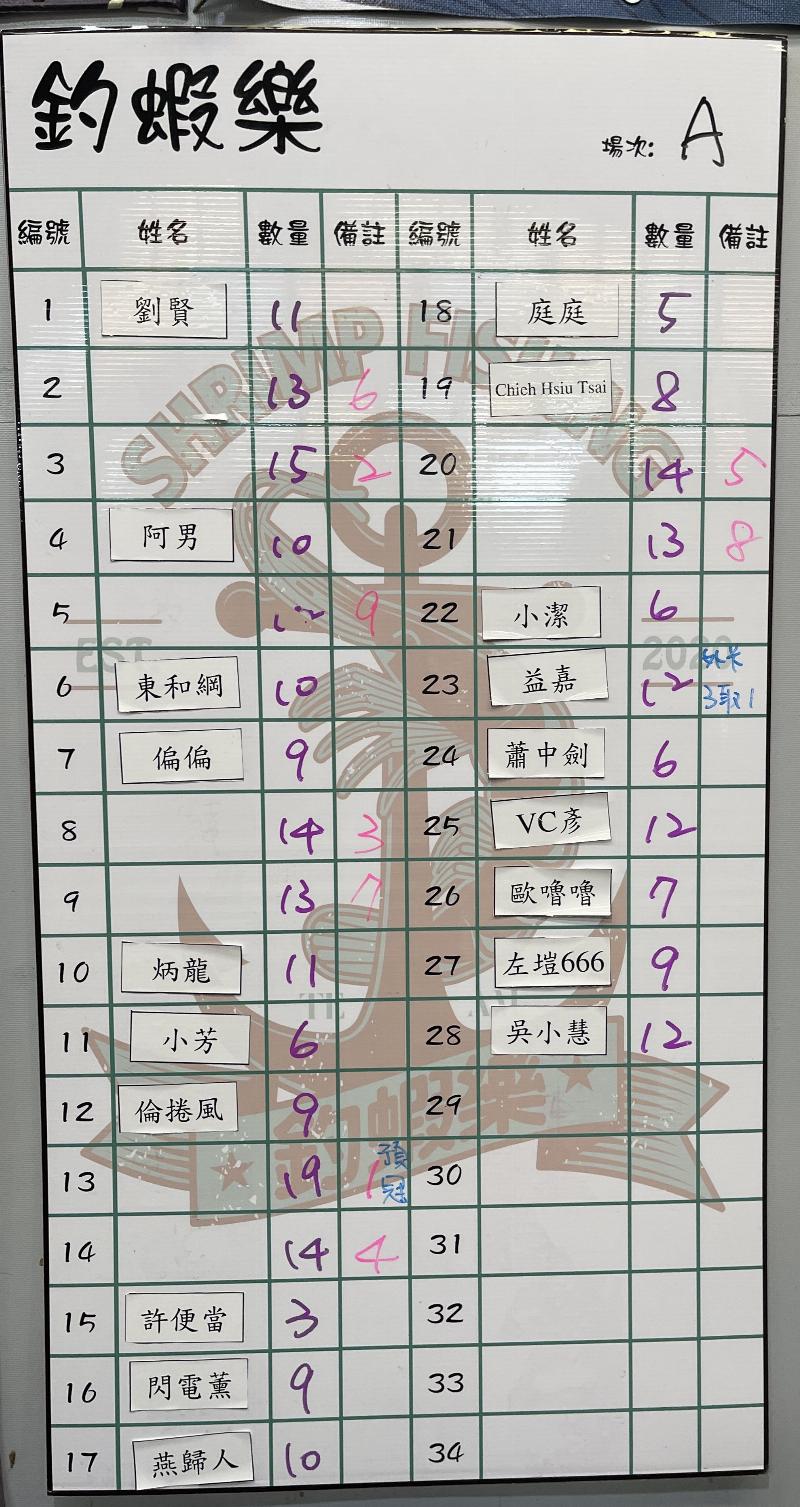 釣蝦樂
場次: A
編號 姓名 數量 備註 編號 姓名 數量 備註
1 劉賢 11 18 庭庭 5
2 13 6 19 Chich Hsiu Tsai 8
3 15 2 20 14 5
4 阿男 10 21 13 8
5 12 9 22 小潔 6
6 東和綱 10 23 益嘉 12 外卡 3取1
7 偏偏 9 24 蕭中劍 6
8 14 3 25 VC彥 12
9 13 7 26 歐嚕嚕 7
10 炳龍 11 27 左塏666 9
11 小芳 6 28 吳小慧 12
12 倫捲風 9 29
13 19 1 預冠 30
14 14 4 31
15 許便當 3 32
16 閃電薰 9 33
17 燕歸人 10 34
SHRIMP FISHING
EST. 2020
釣蝦樂